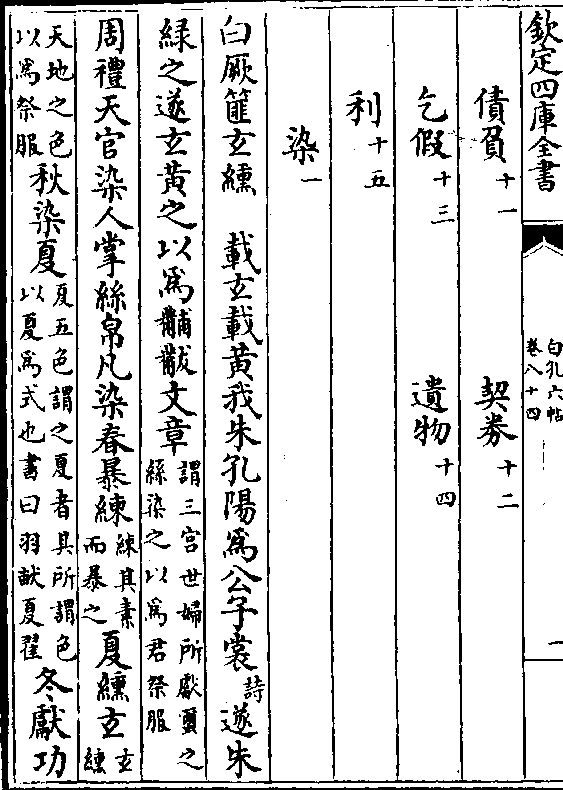 欽定四庫全書
白孔六帖
卷八十四
一
債負十一 契券十二
乞假十三 遺物十四
利十五
染一
白厥篚玄纁 載玄載黄我朱孔陽為公子裳詩遂朱
緑之遂玄黄之以為黼黻文章謂三宫世婦所獻繭之絲染之以為君祭服
周禮天官染人掌絲帛凡染春暴練練其素而暴之夏纁玄玄纁
天地之色以為祭服秋染夏夏五色謂之夏者其所謂色以夏為式也書曰羽畎夏翟冬獻功